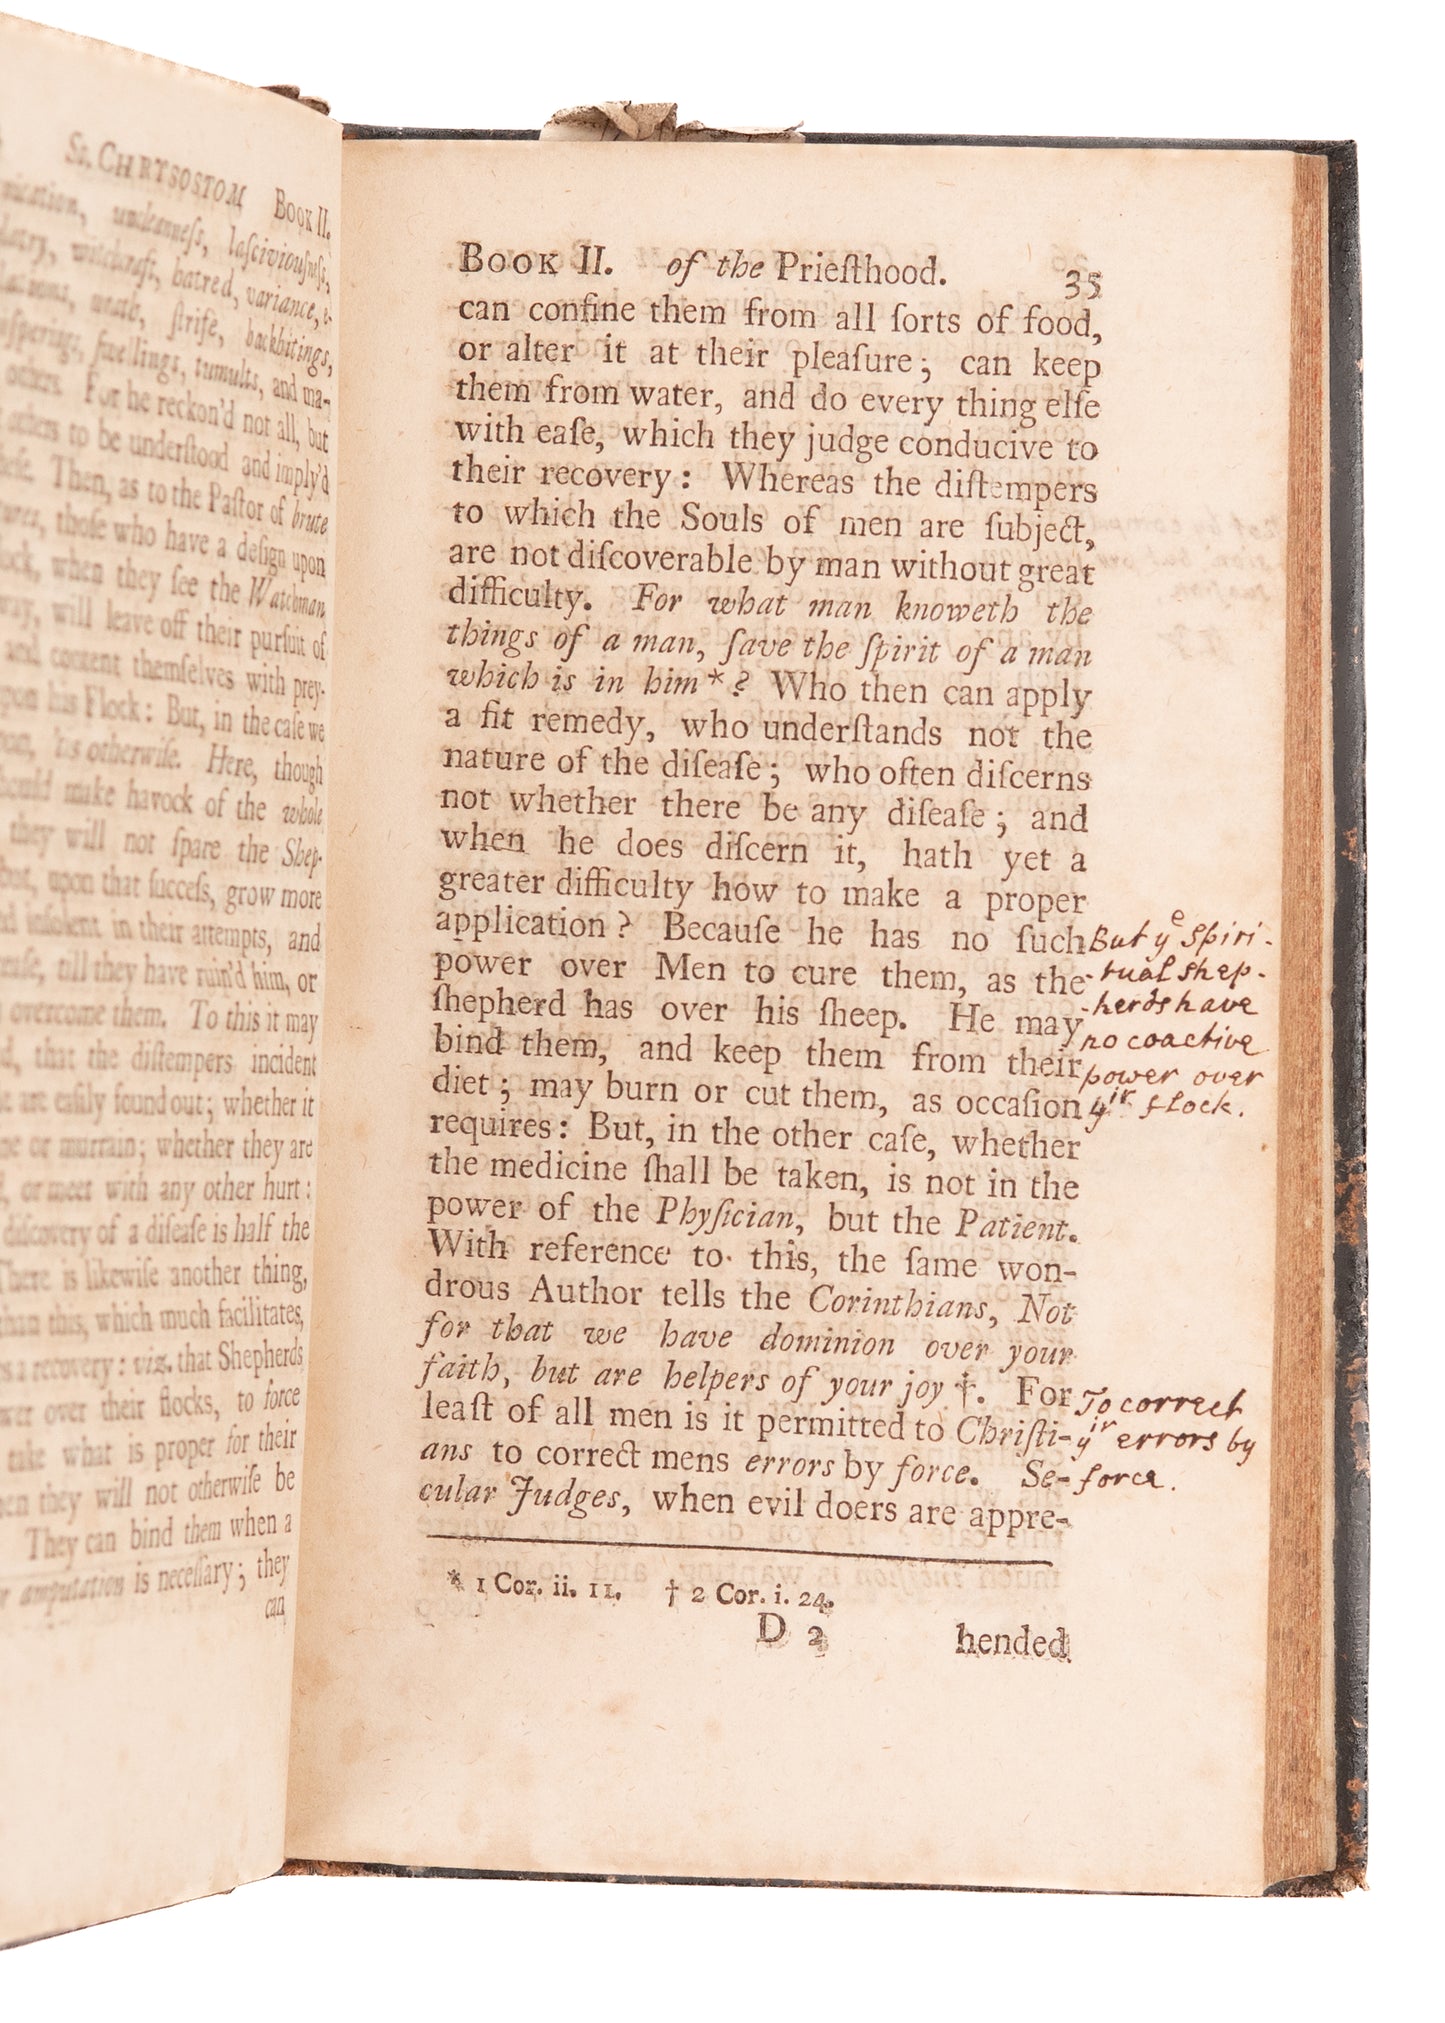 St. CHRYSOSTOM Book II.
uncleanneſs, laſciviouſneſs,
witchcraft, hatred, variance,
ſtrife, backbitings,
ſwellings, tumults, and ma-
others. For he reckon'd not all, but
others to be underſtood and imply'd
Then, as to the Paſtor of brute
thoſe who have a deſign upon
when they ſee the Watchman
will leave off their purſuit of
and content themſelves with prey-
upon his Flock: But, in the caſe we
'tis otherwiſe. Here, though
ſhould make havock of the whole
they will not ſpare the Shep-
but, upon that ſucceſs, grow more
inſolent in their attempts, and
till they have ruin'd him, or
overcome them. To this it may
that the diſtempers incident
are eaſily found out; whether it
or murrain; whether they are
or meet with any other hurt:
diſcovery of a diſeaſe is half the
There is likewiſe another thing,
than this, which much facilitates,
a recovery: viz. that Shepherds
over their flocks, to force
take what is proper for their
they will not otherwiſe be
They can bind them when a
amputation is neceſſary; they
can
BOOK II. of the Prieſthood. 35
can confine them from all ſorts of food,
or alter it at their pleaſure; can keep
them from water, and do every thing elſe
with eaſe, which they judge conducive to
their recovery: Whereas the diſtempers
to which the Souls of men are ſubject,
are not diſcoverable by man without great
difficulty. For what man knoweth the
things of a man, ſave the ſpirit of a man
which is in him*? Who then can apply
a fit remedy, who underſtands not the
nature of the diſeaſe; who often diſcerns
not whether there be any diſeaſe; and
when he does diſcern it, hath yet a
greater difficulty how to make a proper
application? Becauſe he has no ſuch
power over Men to cure them, as the
ſhepherd has over his ſheep. He may
bind them, and keep them from their
diet; may burn or cut them, as occaſion
requires: But, in the other caſe, whether
the medicine ſhall be taken, is not in the
power of the Phyſician, but the Patient.
With reference to this, the ſame won-
drous Author tells the Corinthians, Not
for that we have dominion over your
faith, but are helpers of your joy †. For
leaſt of all men is it permitted to Chriſti-
ans to correct mens errors by force. Se-
cular Judges, when evil doers are appre-
* 1 Cor. ii. 11. † 2 Cor. i. 24.
D 2 hended
But ye Spiri-
-tual shep-
-herds have
no coactive
power over
yir flock.
To correct
yir errors by
force.